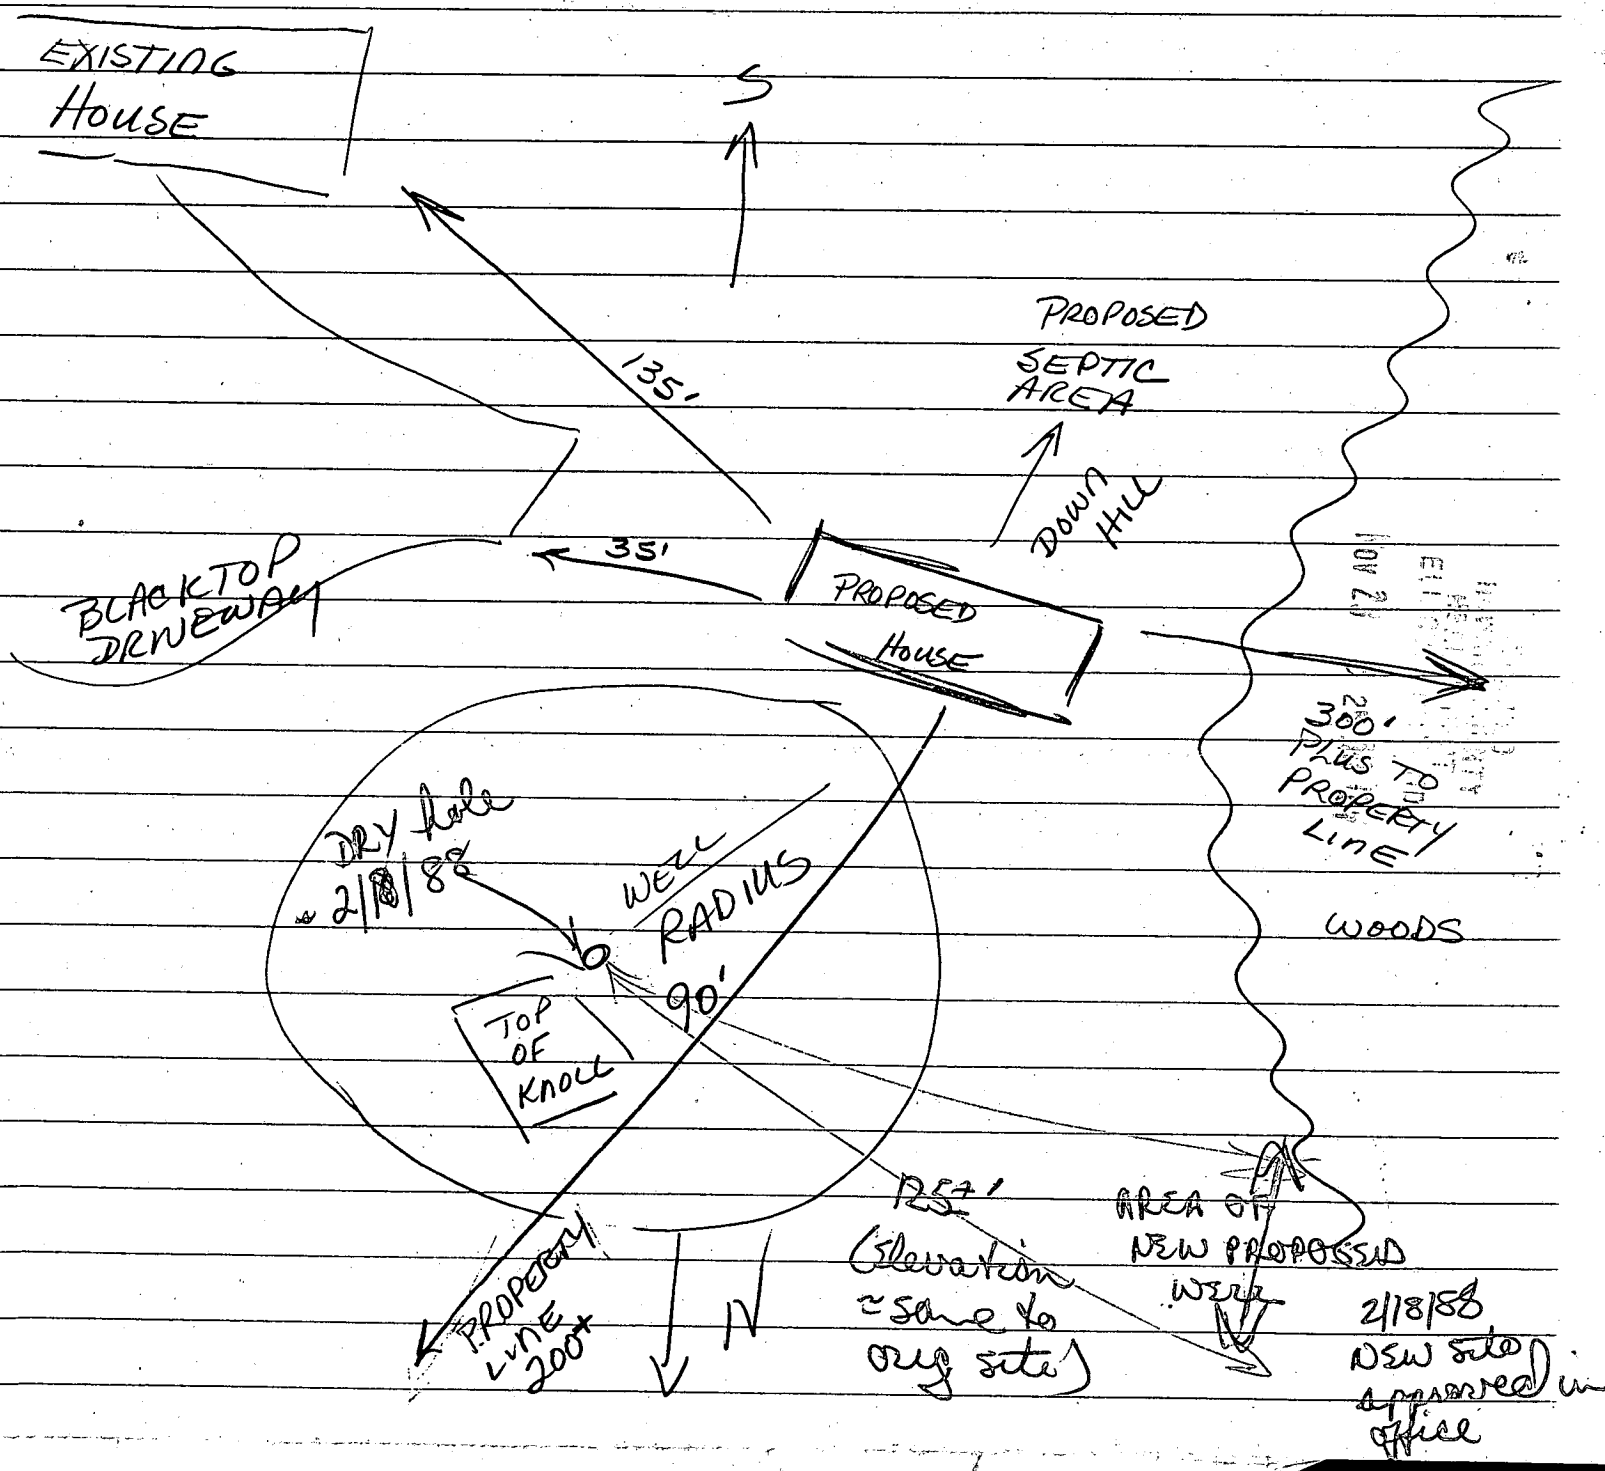 EXISTING
HOUSE
S
135'
PROPOSED
SEPTIC
AREA
DOWN
HILL
35'
BLACKTOP
DRIVEWAY
PROPOSED
HOUSE
NOV 20
300'
PLUS TO
PROPERTY
LINE
DRY hole
2/18/88
WELL
RADIUS
90'
WOODS
TOP
OF
KNOLL
125±'
(Elevation
≈ same to
orig site)
AREA OF
NEW PROPOSED
WELL
PROPERTY
LINE
200+
N
2/18/88
NEW Site
approved in
office